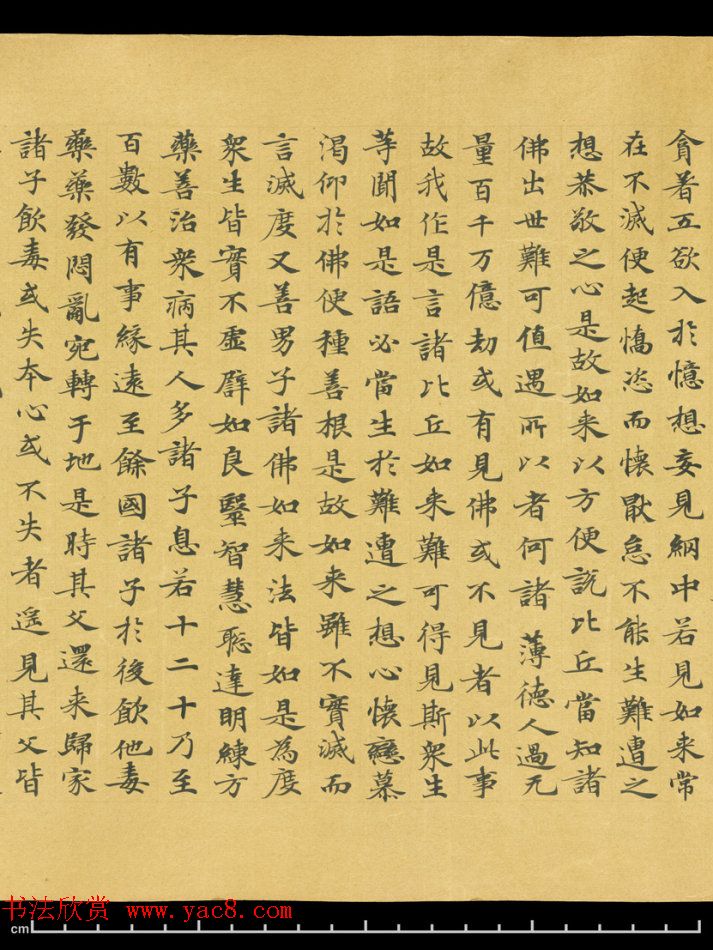 貪着五欲入於憶想妄見網中若見如来常
在不滅便起憍恣而懷猒怠不能生難遭之
想恭敬之心是故如来以方便說比丘當知諸
佛出世難可值遇所以者何諸薄德人過无
量百千万億劫或有見佛或不見者以此事
故我作是言諸比丘如来難可得見斯衆生
等聞如是語必當生於難遭之想心懷戀慕
渴仰於佛便種善根是故如来雖不實滅而
言滅度又善男子諸佛如来法皆如是為度
衆生皆實不虛譬如良毉智慧聡達明練方
藥善治衆病其人多諸子息若十二十乃至
百數以有事緣遠至餘國諸子於後飲他毒
藥藥發悶亂宛轉于地是時其父還来歸家
諸子飲毒或失本心或不失者遥見其父皆
书法欣赏 www.yac8.com
cm